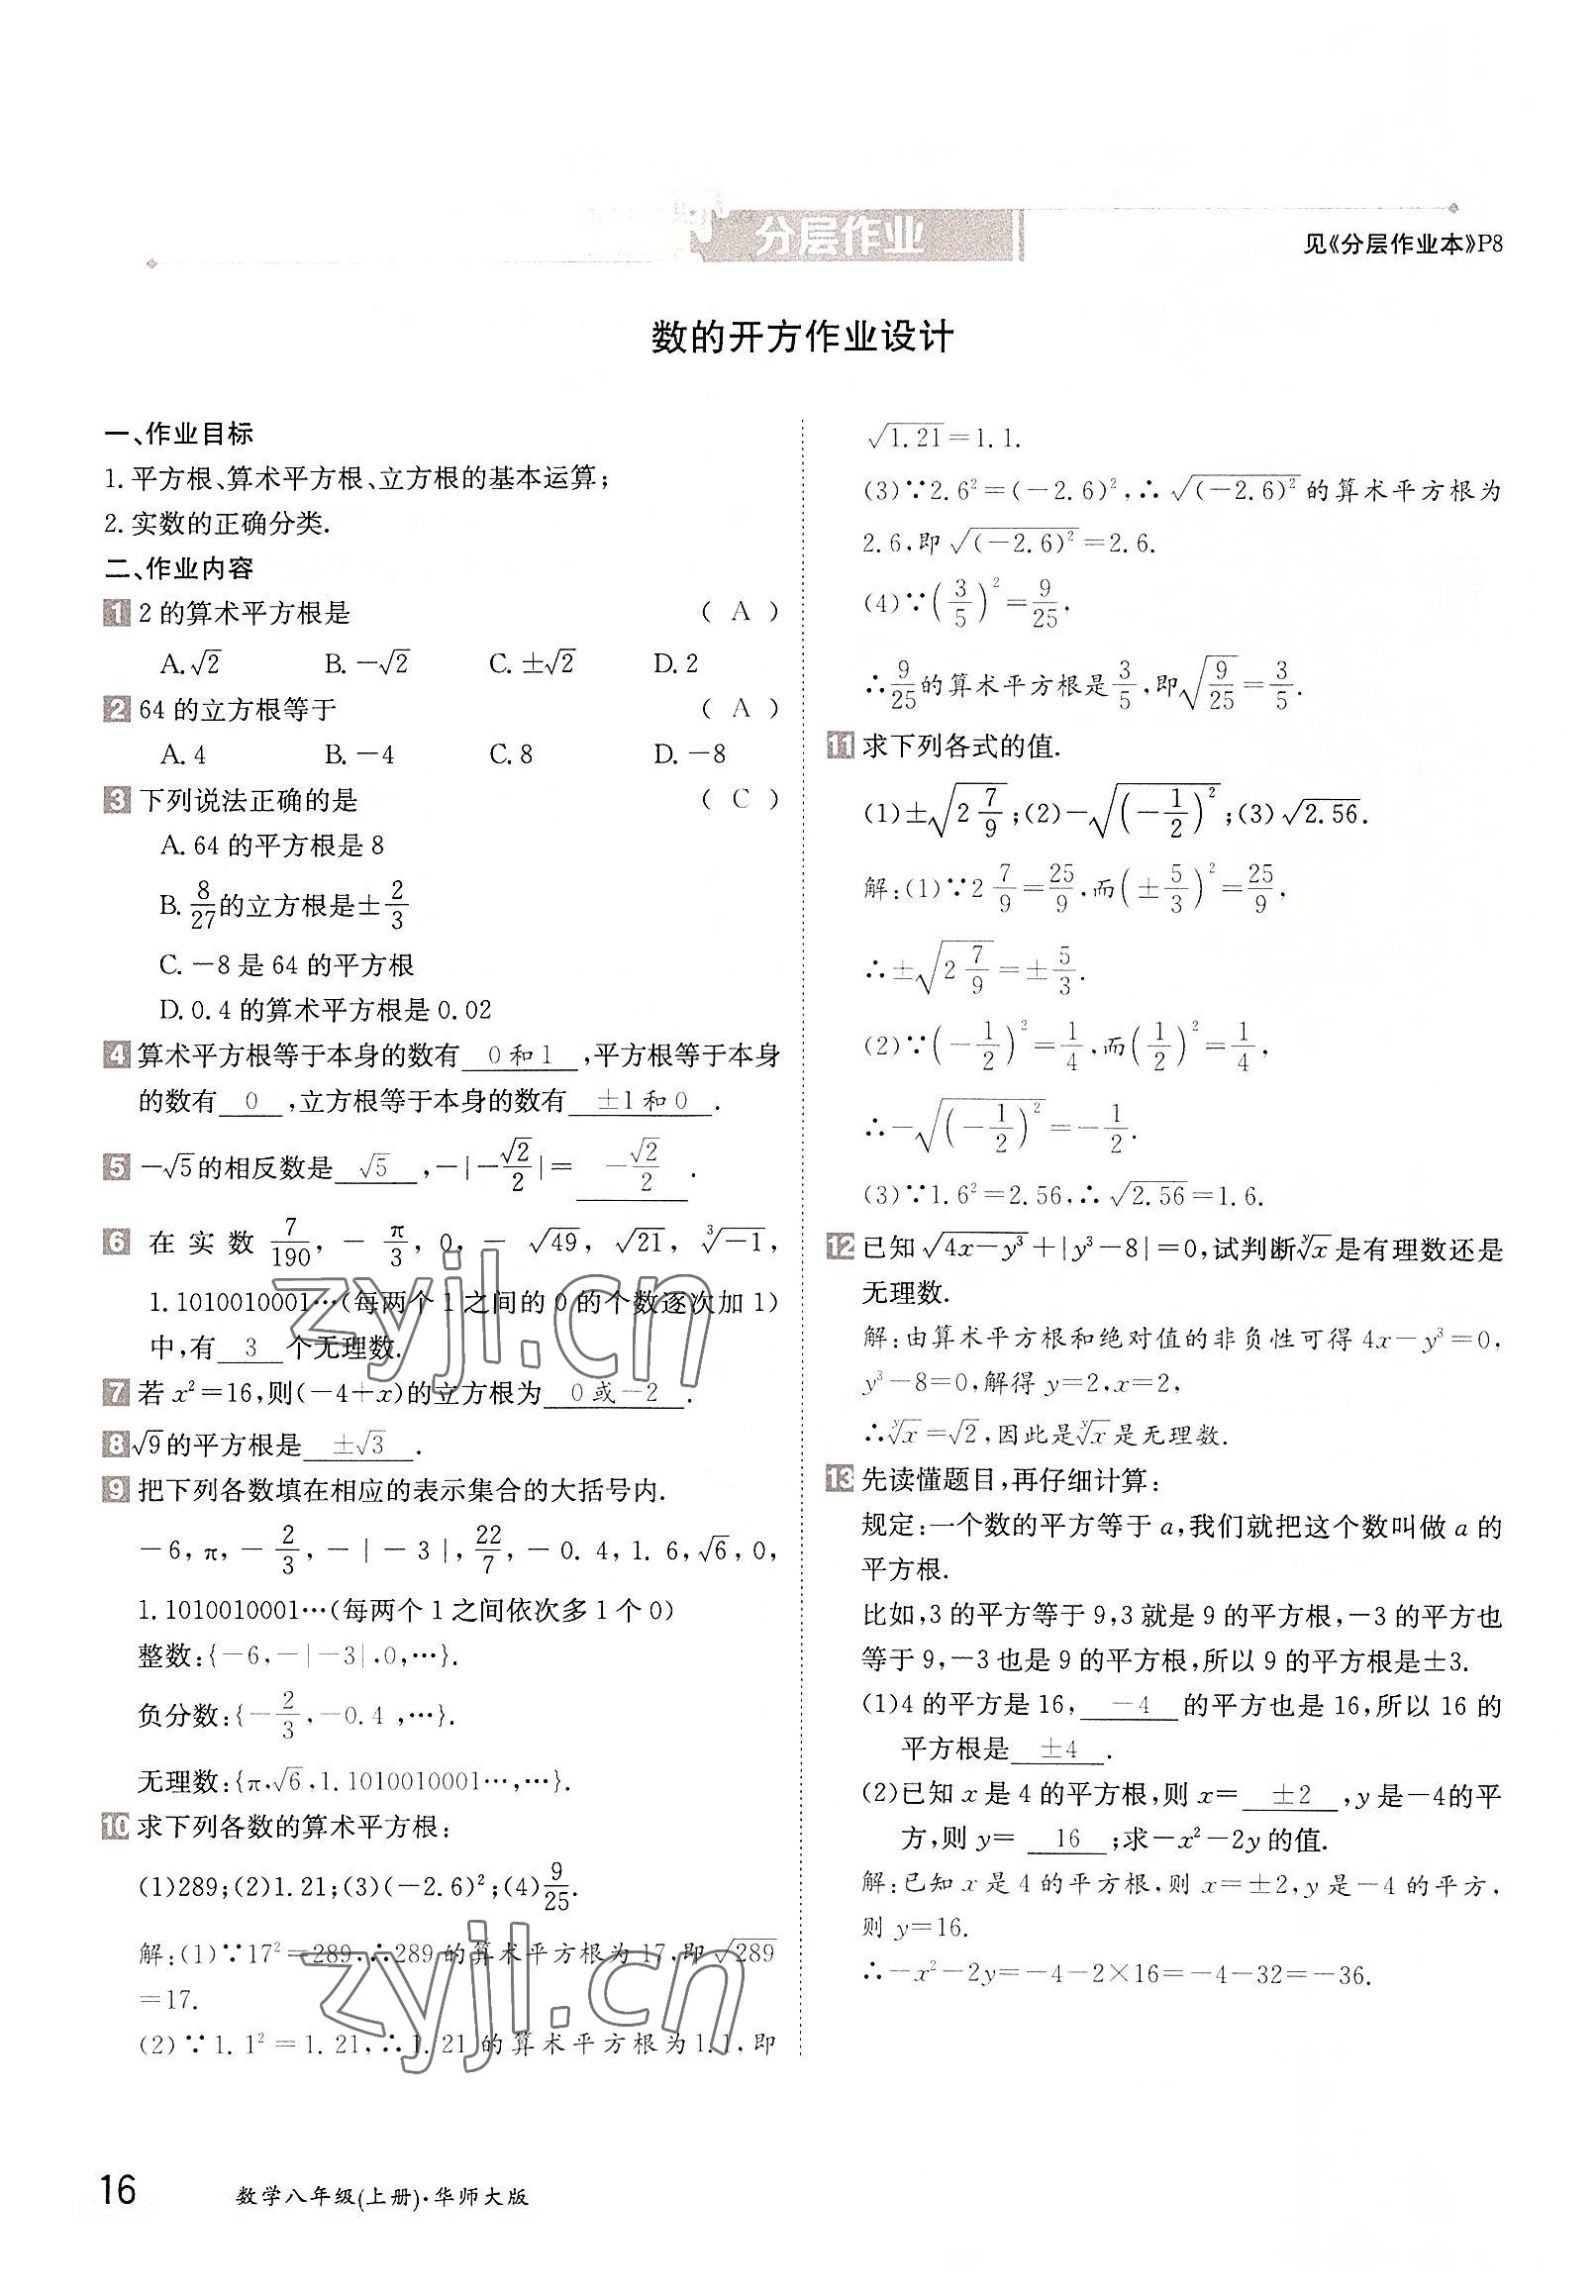 分层作业
见《分层作业本》P8
数的开方作业设计
一、作业目标
1. 平方根、算术平方根、立方根的基本运算;
2. 实数的正确分类.
二、作业内容
1 2 的算术平方根是 ( A )
A. √2 B. －√2 C. ±√2 D. 2
2 64 的立方根等于 ( A )
A. 4 B. －4 C. 8 D. －8
3 下列说法正确的是 ( C )
A. 64 的平方根是 8
B. 8/27 的立方根是± 2/3
C. －8 是 64 的平方根
D. 0.4 的算术平方根是 0.02
4 算术平方根等于本身的数有 0 和 1 ,平方根等于本身
的数有 0 ,立方根等于本身的数有 ±1 和 0 .
5 －√5 的相反数是 √5 ,－|－√2/2|＝ －√2/2 .
6 在实数 7/190, －π/3, 0, －√49, √21, ∛－1,
1.1010010001…(每两个 1 之间的 0 的个数逐次加 1)
中,有 3 个无理数.
7 若 x²＝16,则(－4＋x)的立方根为 0 或－2 .
8 √9 的平方根是 ±√3 .
9 把下列各数填在相应的表示集合的大括号内.
－6, π, －2/3, －|－3|, 22/7, －0.4, 1.6, √6, 0,
1.1010010001…(每两个 1 之间依次多 1 个 0)
整数:{－6,－|－3|,0,…}.
负分数:{－2/3,－0.4 ,…}.
无理数:{π,√6,1.1010010001…,…}.
10 求下列各数的算术平方根:
(1)289;(2)1.21;(3)(－2.6)²;(4)9/25.
解:(1)∵17²＝289,∴289 的算术平方根为 17,即√289
＝17.
(2)∵1.1²＝1.21,∴1.21 的算术平方根为 1.1,即
√1.21＝1.1.
(3)∵2.6²＝(－2.6)²,∴√(－2.6)² 的算术平方根为
2.6,即√(－2.6)²＝2.6.
(4)∵(3/5)²＝9/25.
∴9/25 的算术平方根是 3/5,即√(9/25)＝3/5.
11 求下列各式的值.
(1)±√(2 7/9);(2)－√((－1/2)²);(3)√2.56.
解:(1)∵2 7/9＝25/9,而(±5/3)²＝25/9,
∴±√(2 7/9)＝±5/3.
(2)∵(－1/2)²＝1/4,而(1/2)²＝1/4,
∴－√((－1/2)²)＝－1/2.
(3)∵1.6²＝2.56,∴√2.56＝1.6.
12 已知√(4x－y³)＋|y³－8|＝0,试判断ʸ√x 是有理数还是
无理数.
解:由算术平方根和绝对值的非负性可得 4x－y³＝0,
y³－8＝0,解得 y＝2,x＝2,
∴ʸ√x＝√2,因此是ʸ√x 是无理数.
13 先读懂题目,再仔细计算:
规定:一个数的平方等于 a,我们就把这个数叫做 a 的
平方根.
比如,3 的平方等于 9,3 就是 9 的平方根,－3 的平方也
等于 9,－3 也是 9 的平方根,所以 9 的平方根是±3.
(1)4 的平方是 16, －4 的平方也是 16,所以 16 的
平方根是 ±4 .
(2)已知 x 是 4 的平方根,则 x＝ ±2 ,y 是－4的平
方,则 y＝ 16 ;求－x²－2y 的值.
解:已知 x 是 4 的平方根,则 x＝±2,y 是－4 的平方,
则 y＝16.
∴－x²－2y＝－4－2×16＝－4－32＝－36.
zyjl.cn
zyjl.cn
16 数学八年级(上册)·华师大版